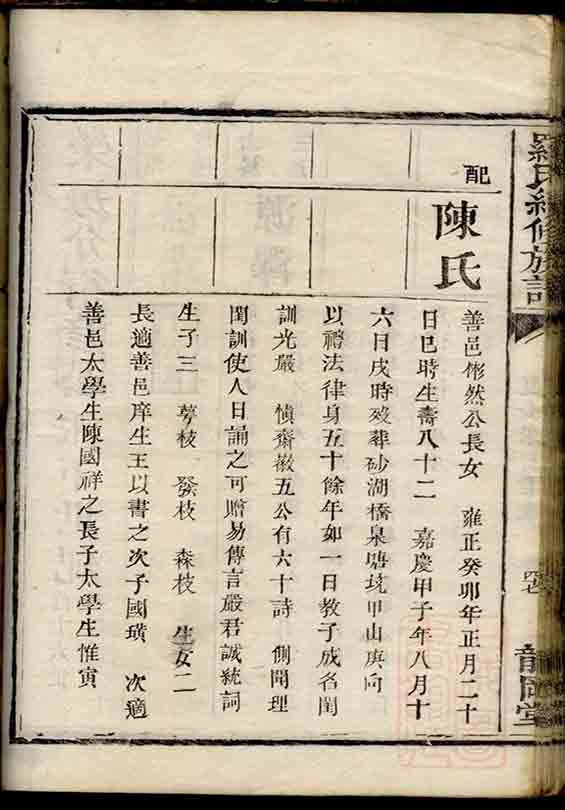 羅氏續修族譜
韻岡堂
配
陳氏
善邑彬然公長女 雍正癸卯年正月二十
日巳時生壽八十二 嘉慶甲子年八月十
六日戌時歿葬砂湖橋泉塘坑甲山庚向
以禮法律身五十餘年如一日教子成名閨
訓光嚴 慎齋徽五公有六十詩 側聞理
閨訓使人日誦之可贈易傳言嚴君誠統詞
生子三 萼枝 發枝 森枝 生女二
長適善邑庠生王以書之次子國璜 次適
善邑太學生陳國祥之長子太學生惟寅